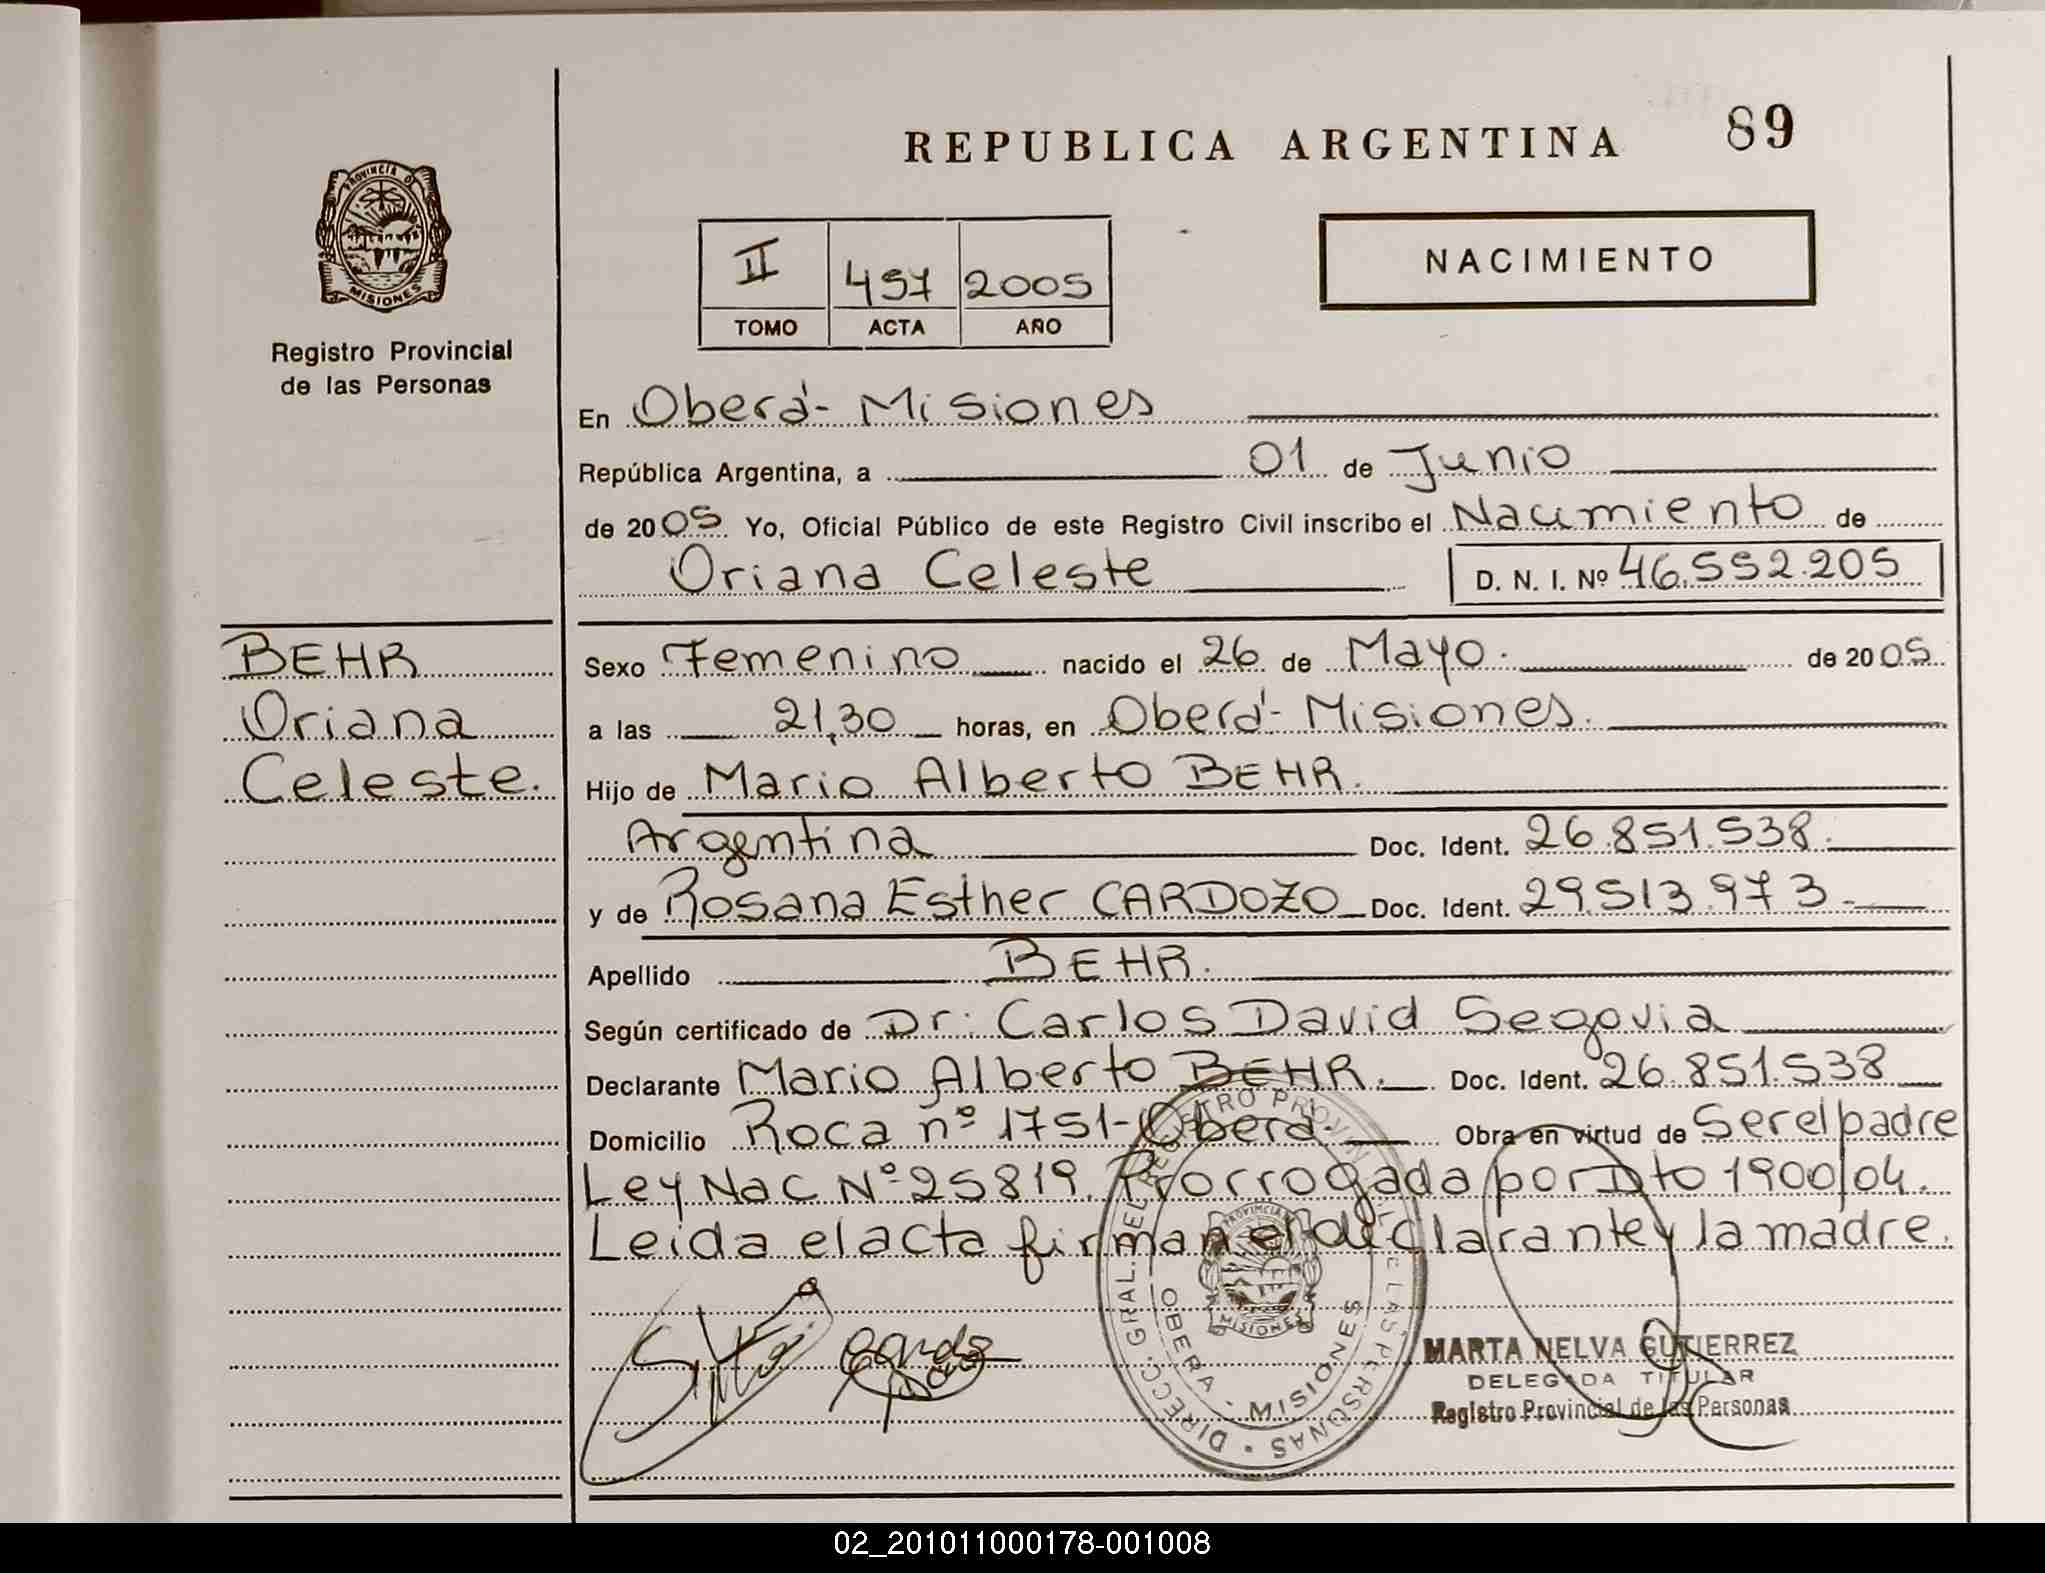 REPUBLICA ARGENTINA 89
PROVINCIA DE
MISIONES
Registro Provincial
de las Personas
II 457 2005
TOMO ACTA AÑO
NACIMIENTO
En Oberá - Misiones
República Argentina, a 01 de Junio
de 2005 Yo, Oficial Público de este Registro Civil inscribo el Nacimiento de
Oriana Celeste D. N. I. Nº 46.552.205
BEHR
Oriana
Celeste.
Sexo Femenino nacido el 26 de Mayo. de 2005
a las 21,30 horas, en Oberá - Misiones.
Hijo de Mario Alberto BEHR.
Argentina Doc. Ident. 26.851.538.
y de Rosana Esther CARDOZO Doc. Ident. 29.513.973.
Apellido BEHR.
Según certificado de Dr: Carlos David Segovia
Declarante Mario Alberto BEHR. Doc. Ident. 26.851.538
Domicilio Roca nº 1751 - Oberá. Obra en virtud de Ser el padre
Ley Nac Nº 25819. Prorrogada por Dto 1900/04.
Leida el acta firman el declarante y la madre.
DIRECC. GRAL. DEL REGISTRO PROVINCIAL DE LAS PERSONAS
OBERA - MISIONES
PROVINCIA
MISIONES
MARTA NELVA GUTIERREZ
DELEGADA TITULAR
Registro Provincial de las Personas
02_201011000178-001008